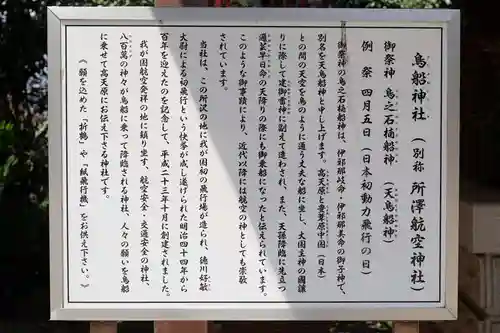 鳥船神社（別称 所澤航空神社）
御祭神 鳥之石楠船神（天鳥船神）
例祭 四月五日（日本初動力飛行の日）
御祭神の鳥之石楠船神は、伊邪那岐命・伊邪那美命の御子神で、
別名を天鳥船神と申し上げます。高天原と葦葦原中国（日本）
との間の天空を鳥のように通う丈夫な船に坐し、大国主神の国譲
りに際して建御雷神に副えて遣わされ、また、天孫降臨に先立つ
饒速日命の天降りの際にも御乗船になったと伝えられています。
このような御事蹟により、近代以降には航空の神としても崇敬
されています。
当社は、この所沢の地に我が国初の飛行場が造られ、徳川好敏
大尉による初飛行という快挙が成し遂げられた明治四十四年から
百年を迎えたのを記念して、平成二十三年十月に創建されました。
我が国航空発祥の地に鎮り坐す、航空安全・交通安全の神社、
八百萬の神々が鳥船に乗って降臨される神社、人々の願いを鳥船
に乗せて高天原にお伝え下さる神社です。
《願を込めた「折鶴」や「紙飛行機」をお供え下さい。》